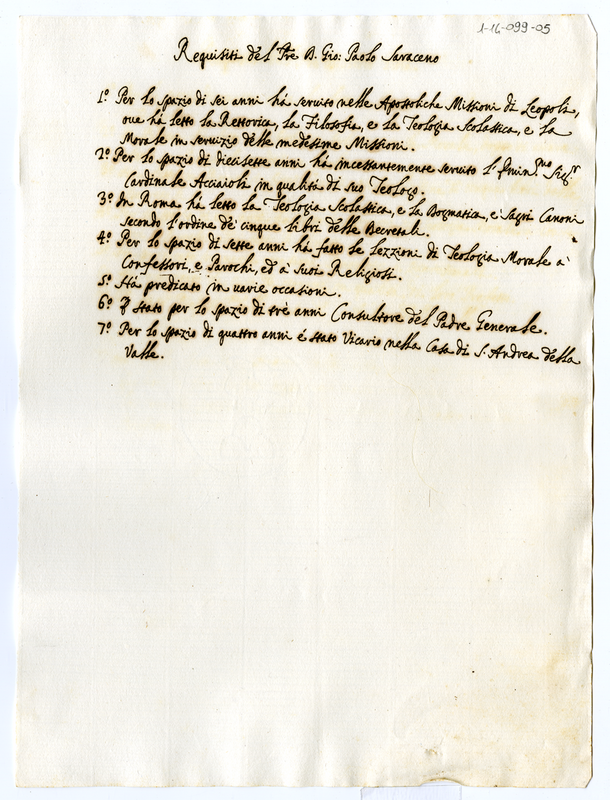 1-16-099-05
Requisiti del Pre D. Gio: Paolo Saraceno
1.º Per lo spazio di sei anni hà seruito nelle Apostoliche Missioni di Leopoli,
oue hà letto la Rettorica, la Filosofia, e la Teologia Scolastica, e la
Morale in seruizio delle medesime Missioni.
2.º Per lo spazio di diecisette anni hà incessantemente seruito l'Emin.mo Sig.r
Cardinale Acciaioli in qualità di suo Teologo.
3.º In Roma hà letto la Teologia Scolastica, e la Dogmatica, e i Sagri Canoni
secondo l'ordine de' cinque libri delle Decretali.
4.º Per lo spazio di sette anni hà fatto le Lezzioni di Teologia Morale à
Confessori, e Parochi, ed à suoi Religiosi.
5.º Hà predicato in uarie occasioni.
6.º È stato per lo spazio di trè anni Consultore del Padre Generale.
7.º Per lo spazio di quattro anni é stato Vicario nella Casa di S. Andrea della
Valle.